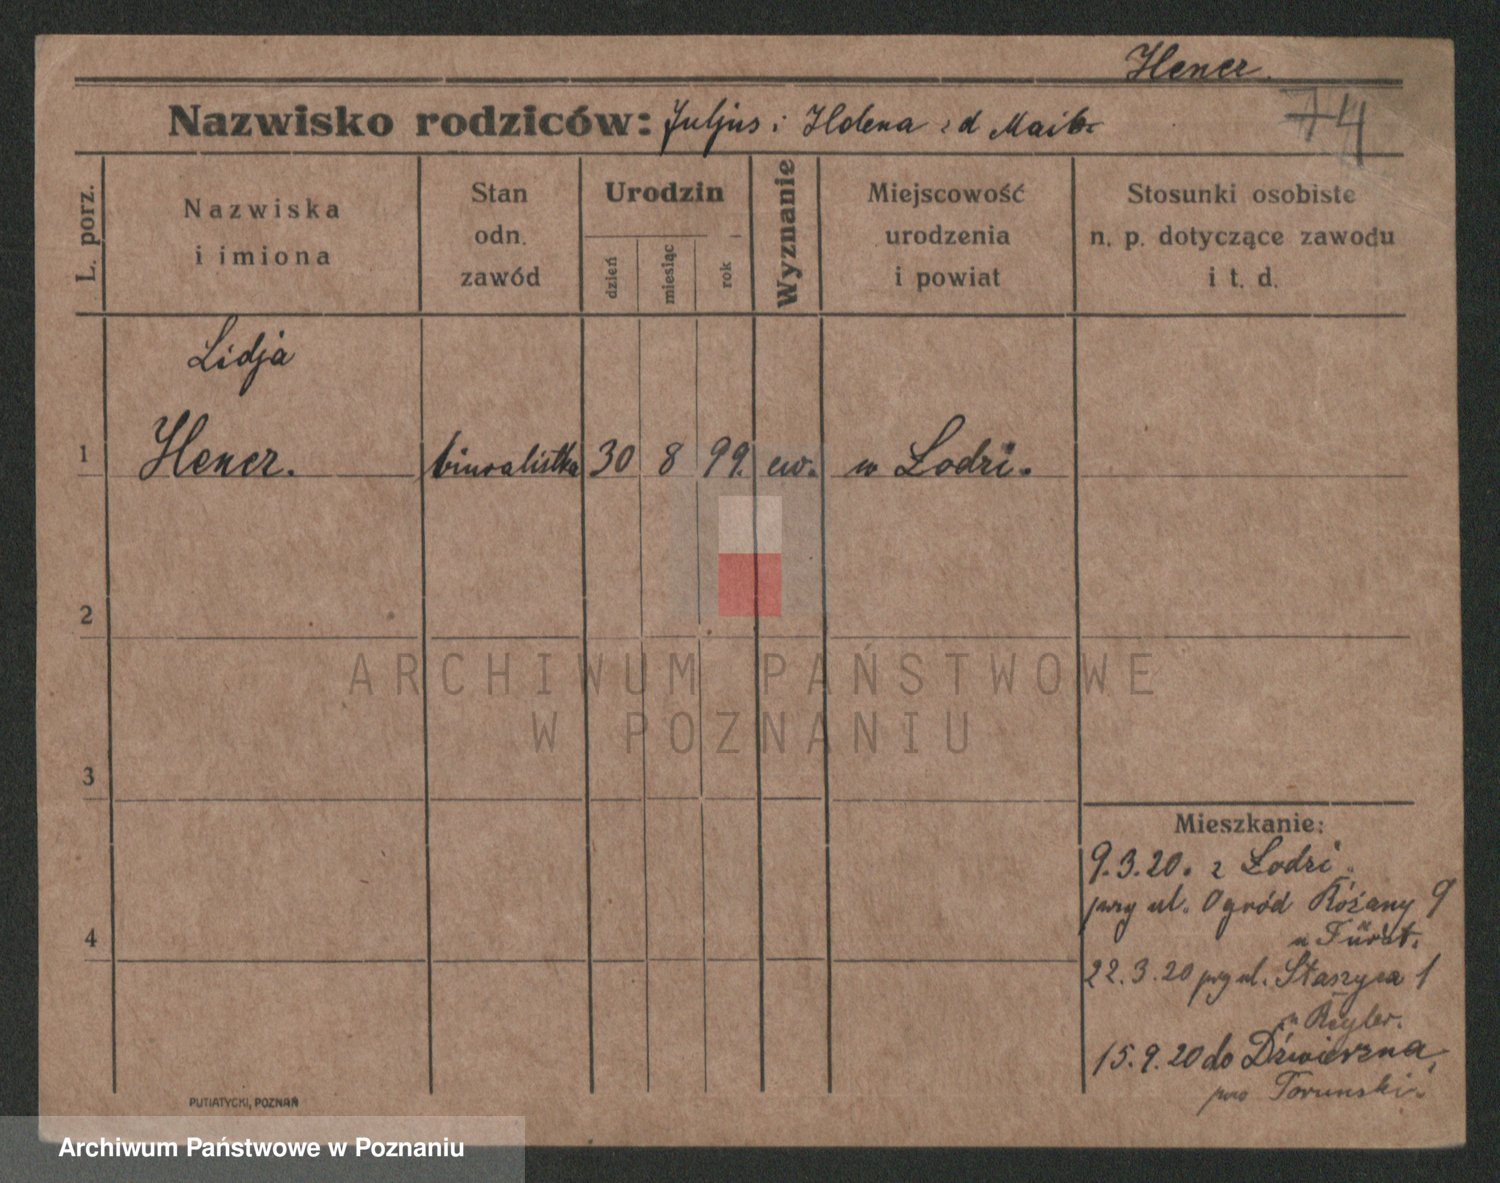 Hener.
Nazwisko rodziców: Juljus i Helena z d Maib-
74
L. porz.
Nazwiska
i imiona
Stan
odn.
zawód
Urodzin
dzień
miesiąc
rok
Wyznanie
Miejscowość
urodzenia
i powiat
Stosunki osobiste
n. p. dotyczące zawodu
i t. d.
Lidja
1 Hener. biuralistka 30 8 99. ew. w Łodzi.
2
ARCHIWUM PAŃSTWOWE
W POZNANIU
3
Mieszkanie:
9.3.20. z Łodzi.
przy ul. Ogród Różany 9
u Fürst.
4
22.3.20 przy ul. Staszyca 1
u Regler.
15.9.20 do Dźwierzna,
pow Toruński.
PUTIATYCKI, POZNAŃ
Archiwum Państwowe w Poznaniu